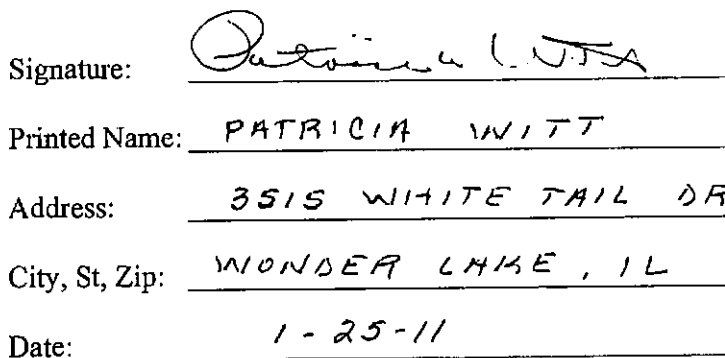 Signature: Patricia L. Witt
Printed Name: PATRICIA WITT
Address: 3515 WHITE TAIL DR
City, St, Zip: WONDER LAKE, IL
Date: 1-25-11